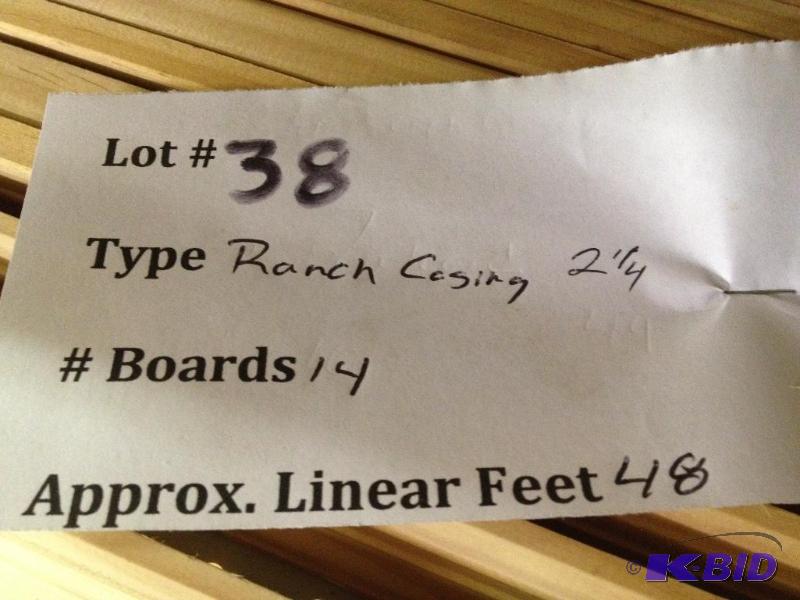 Lot # 38
Type Ranch Casing 2 1/4
# Boards 14
Approx. Linear Feet 48
© K-BID